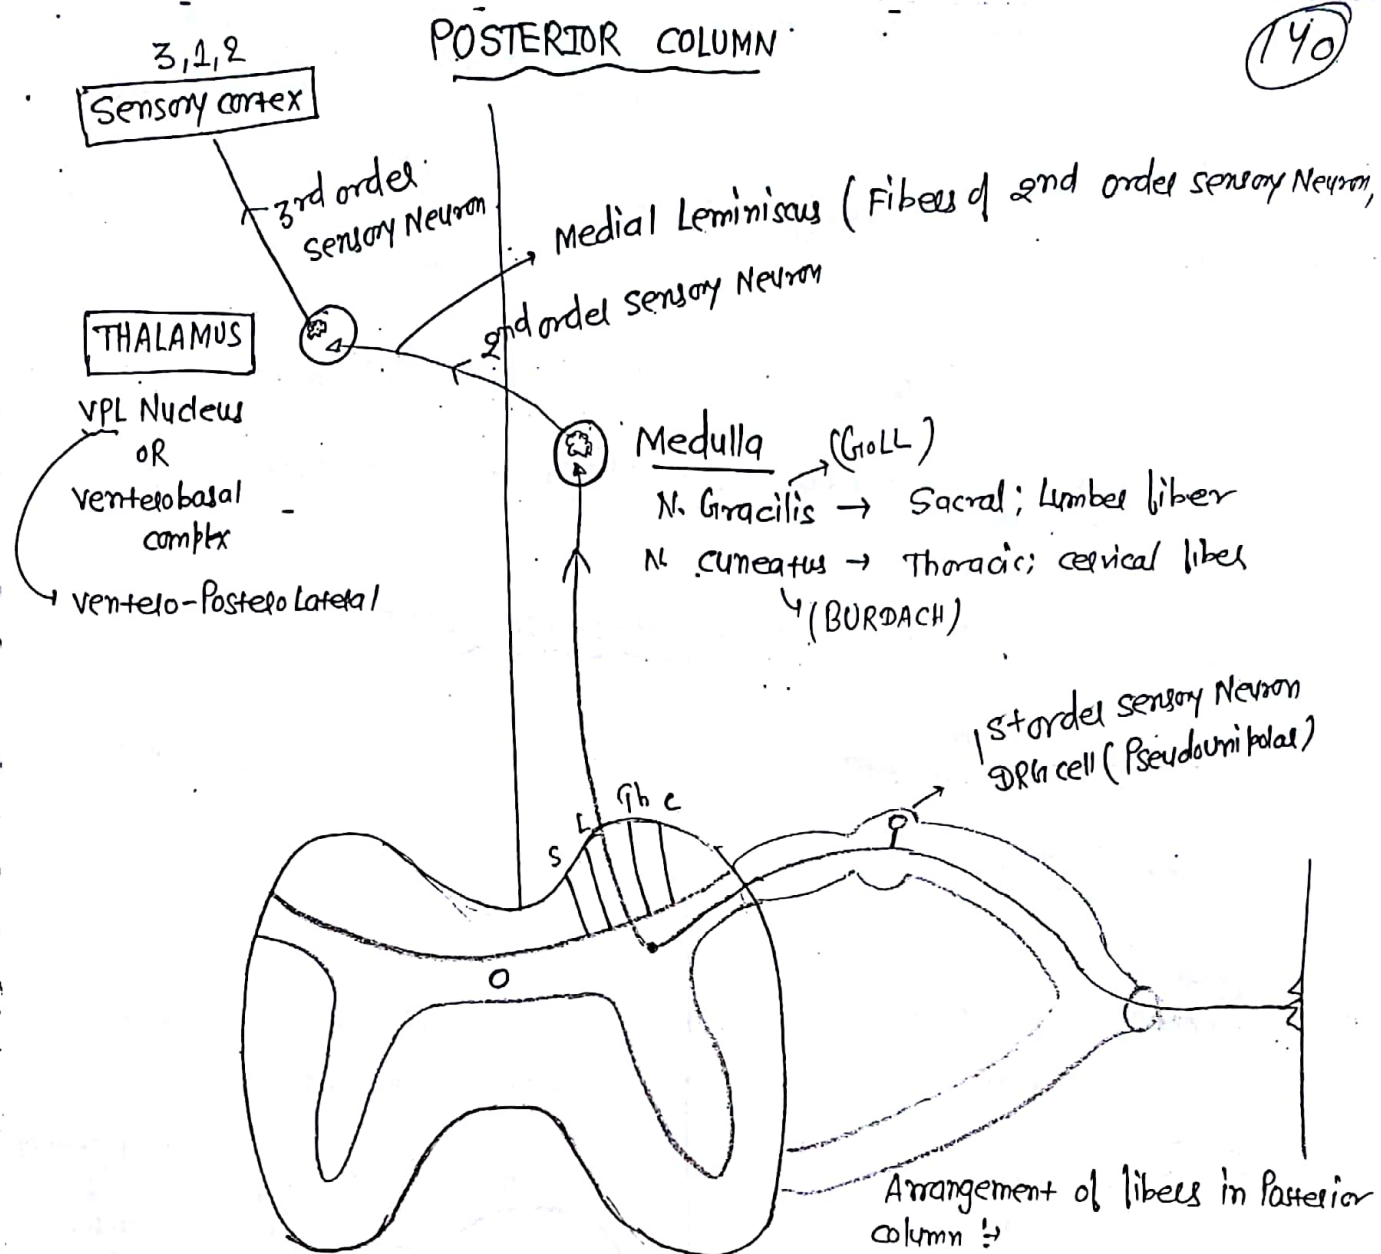 POSTERIOR COLUMN
140
3,1,2
Sensory cortex
3rd order
sensory Neuron
Medial Leminiscus (Fibers of 2nd order sensory Neuron,
2nd order sensory Neuron
THALAMUS
VPL Nucleus
OR
Ventero basal
complex
Ventero-Postero Lateral
Medulla
(GOLL)
N. Gracilis → Sacral; Lumber fiber
N. cuneatus → Thoracic; cervical fiber
(BURDACH)
1st order sensory Neuron
DRG cell (Pseudounipolar)
S L Th C
Arrangement of fibers in Posterior
column :→